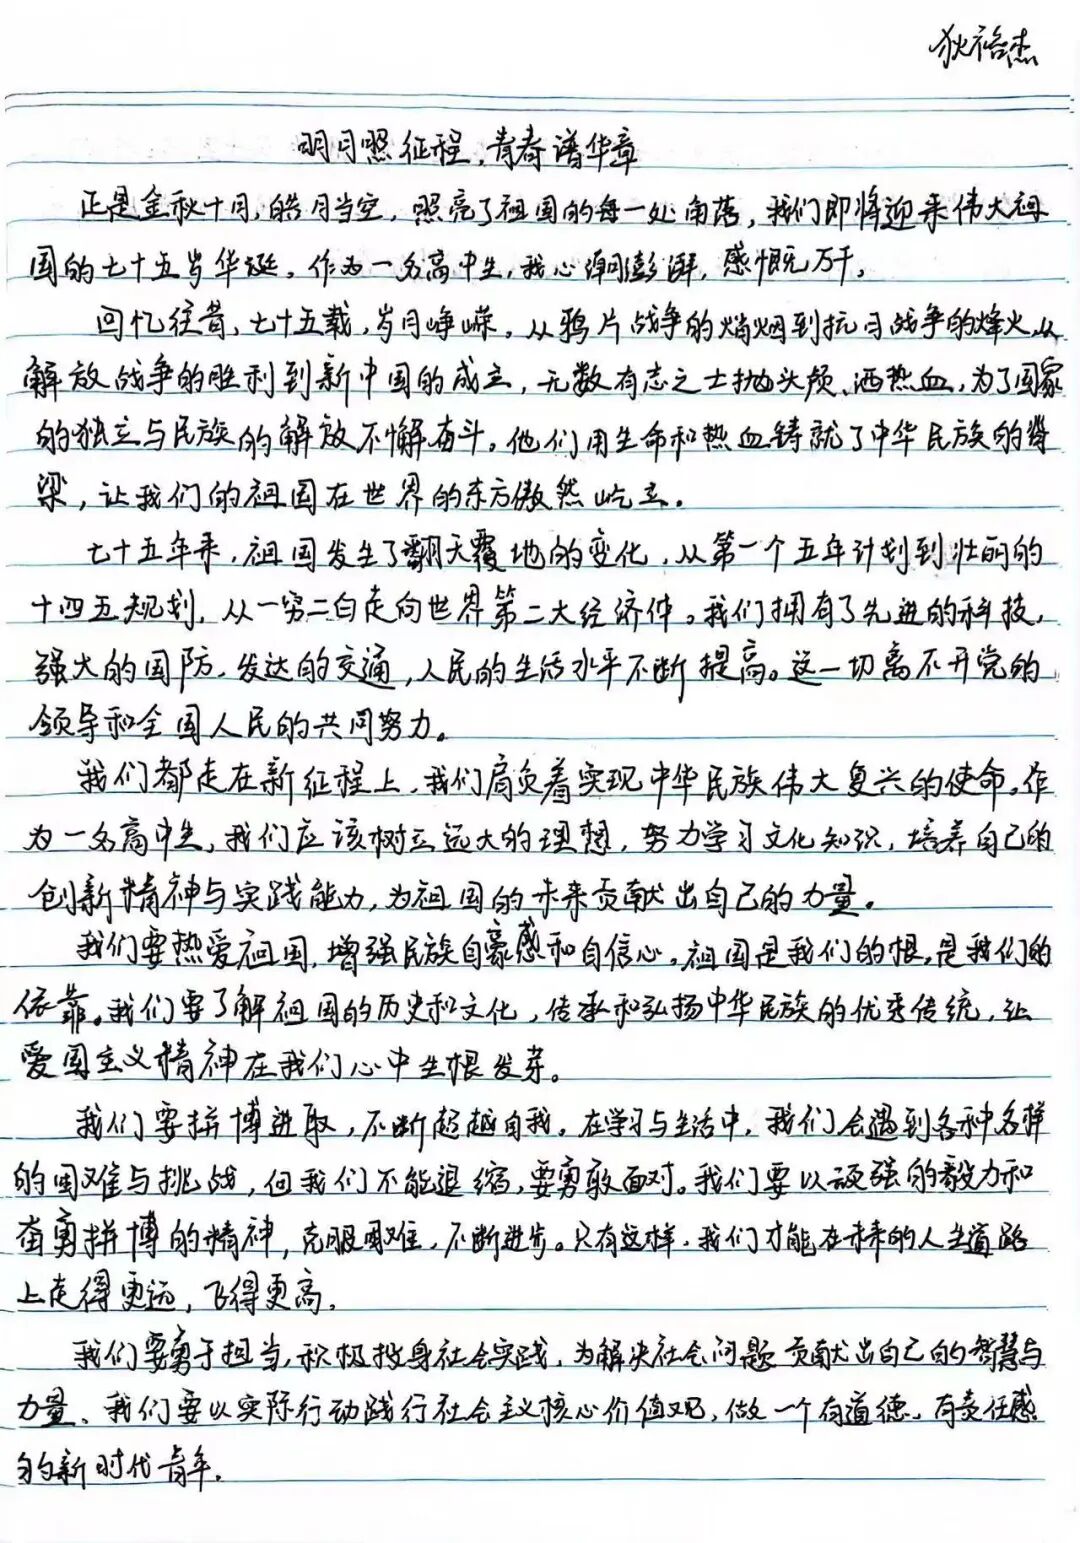 狄裕杰
明月照征程,青春谱华章
正是金秋十月,皓月当空,照亮了祖国的每一处角落,我们即将迎来伟大祖
国的七十五岁华诞。作为一名高中生,我心潮澎湃,感慨万千。
回忆往昔,七十五载,岁月峥嵘。从鸦片战争的硝烟到抗日战争的烽火,从
解放战争的胜利到新中国的成立,无数有志之士抛头颅、洒热血,为了国家
的独立与民族的解放不懈奋斗。他们用生命和热血铸就了中华民族的脊
梁,让我们的祖国在世界的东方傲然屹立。
七十五年来,祖国发生了翻天覆地的变化,从第一个五年计划到壮丽的
十四五规划,从一穷二白走向世界第二大经济体。我们拥有了先进的科技,
强大的国防,发达的交通,人民的生活水平不断提高。这一切离不开党的
领导和全国人民的共同努力。
我们都走在新征程上,我们肩负着实现中华民族伟大复兴的使命。作
为一名高中生,我们应该树立远大的理想,努力学习文化知识,培养自己的
创新精神与实践能力,为祖国的未来贡献出自己的力量。
我们要热爱祖国,增强民族自豪感和自信心。祖国是我们的根,是我们的
依靠。我们要了解祖国的历史和文化,传承和弘扬中华民族的优秀传统,让
爱国主义精神在我们心中生根发芽。
我们要拼博进取,不断超越自我。在学习与生活中,我们会遇到各种各样
的困难与挑战,但我们不能退缩,要勇敢面对。我们要以顽强的毅力和
奋勇拼博的精神,克服困难,不断进步。只有这样,我们才能在未来的人生道路
上走得更远,飞得更高。
我们要勇于担当,积极投身社会实践,为解决社会问题贡献出自己的智慧与
力量、我们要以实际行动践行社会主义核心价值观,做一个有道德、有责任感
的新时代青年。